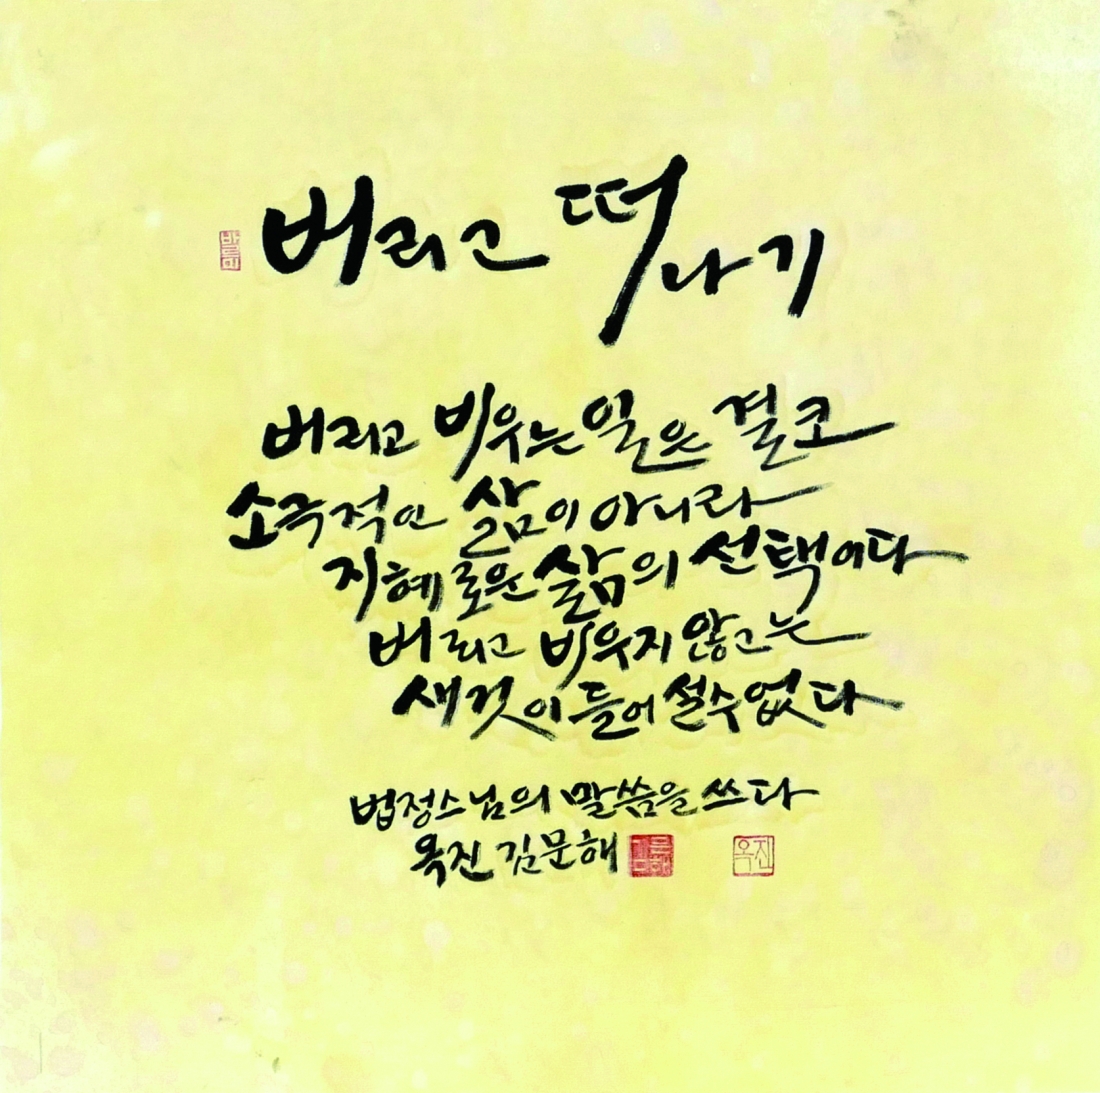 버리고 떠나기
버리고 비우는 일은 결코
소극적인 삶이 아니라
지혜로운 삶의 선택이다
버리고 비우지 않고는
새것이 들어설수 없다
법정스님의 말씀을 쓰다
옥진 김문해
옥진